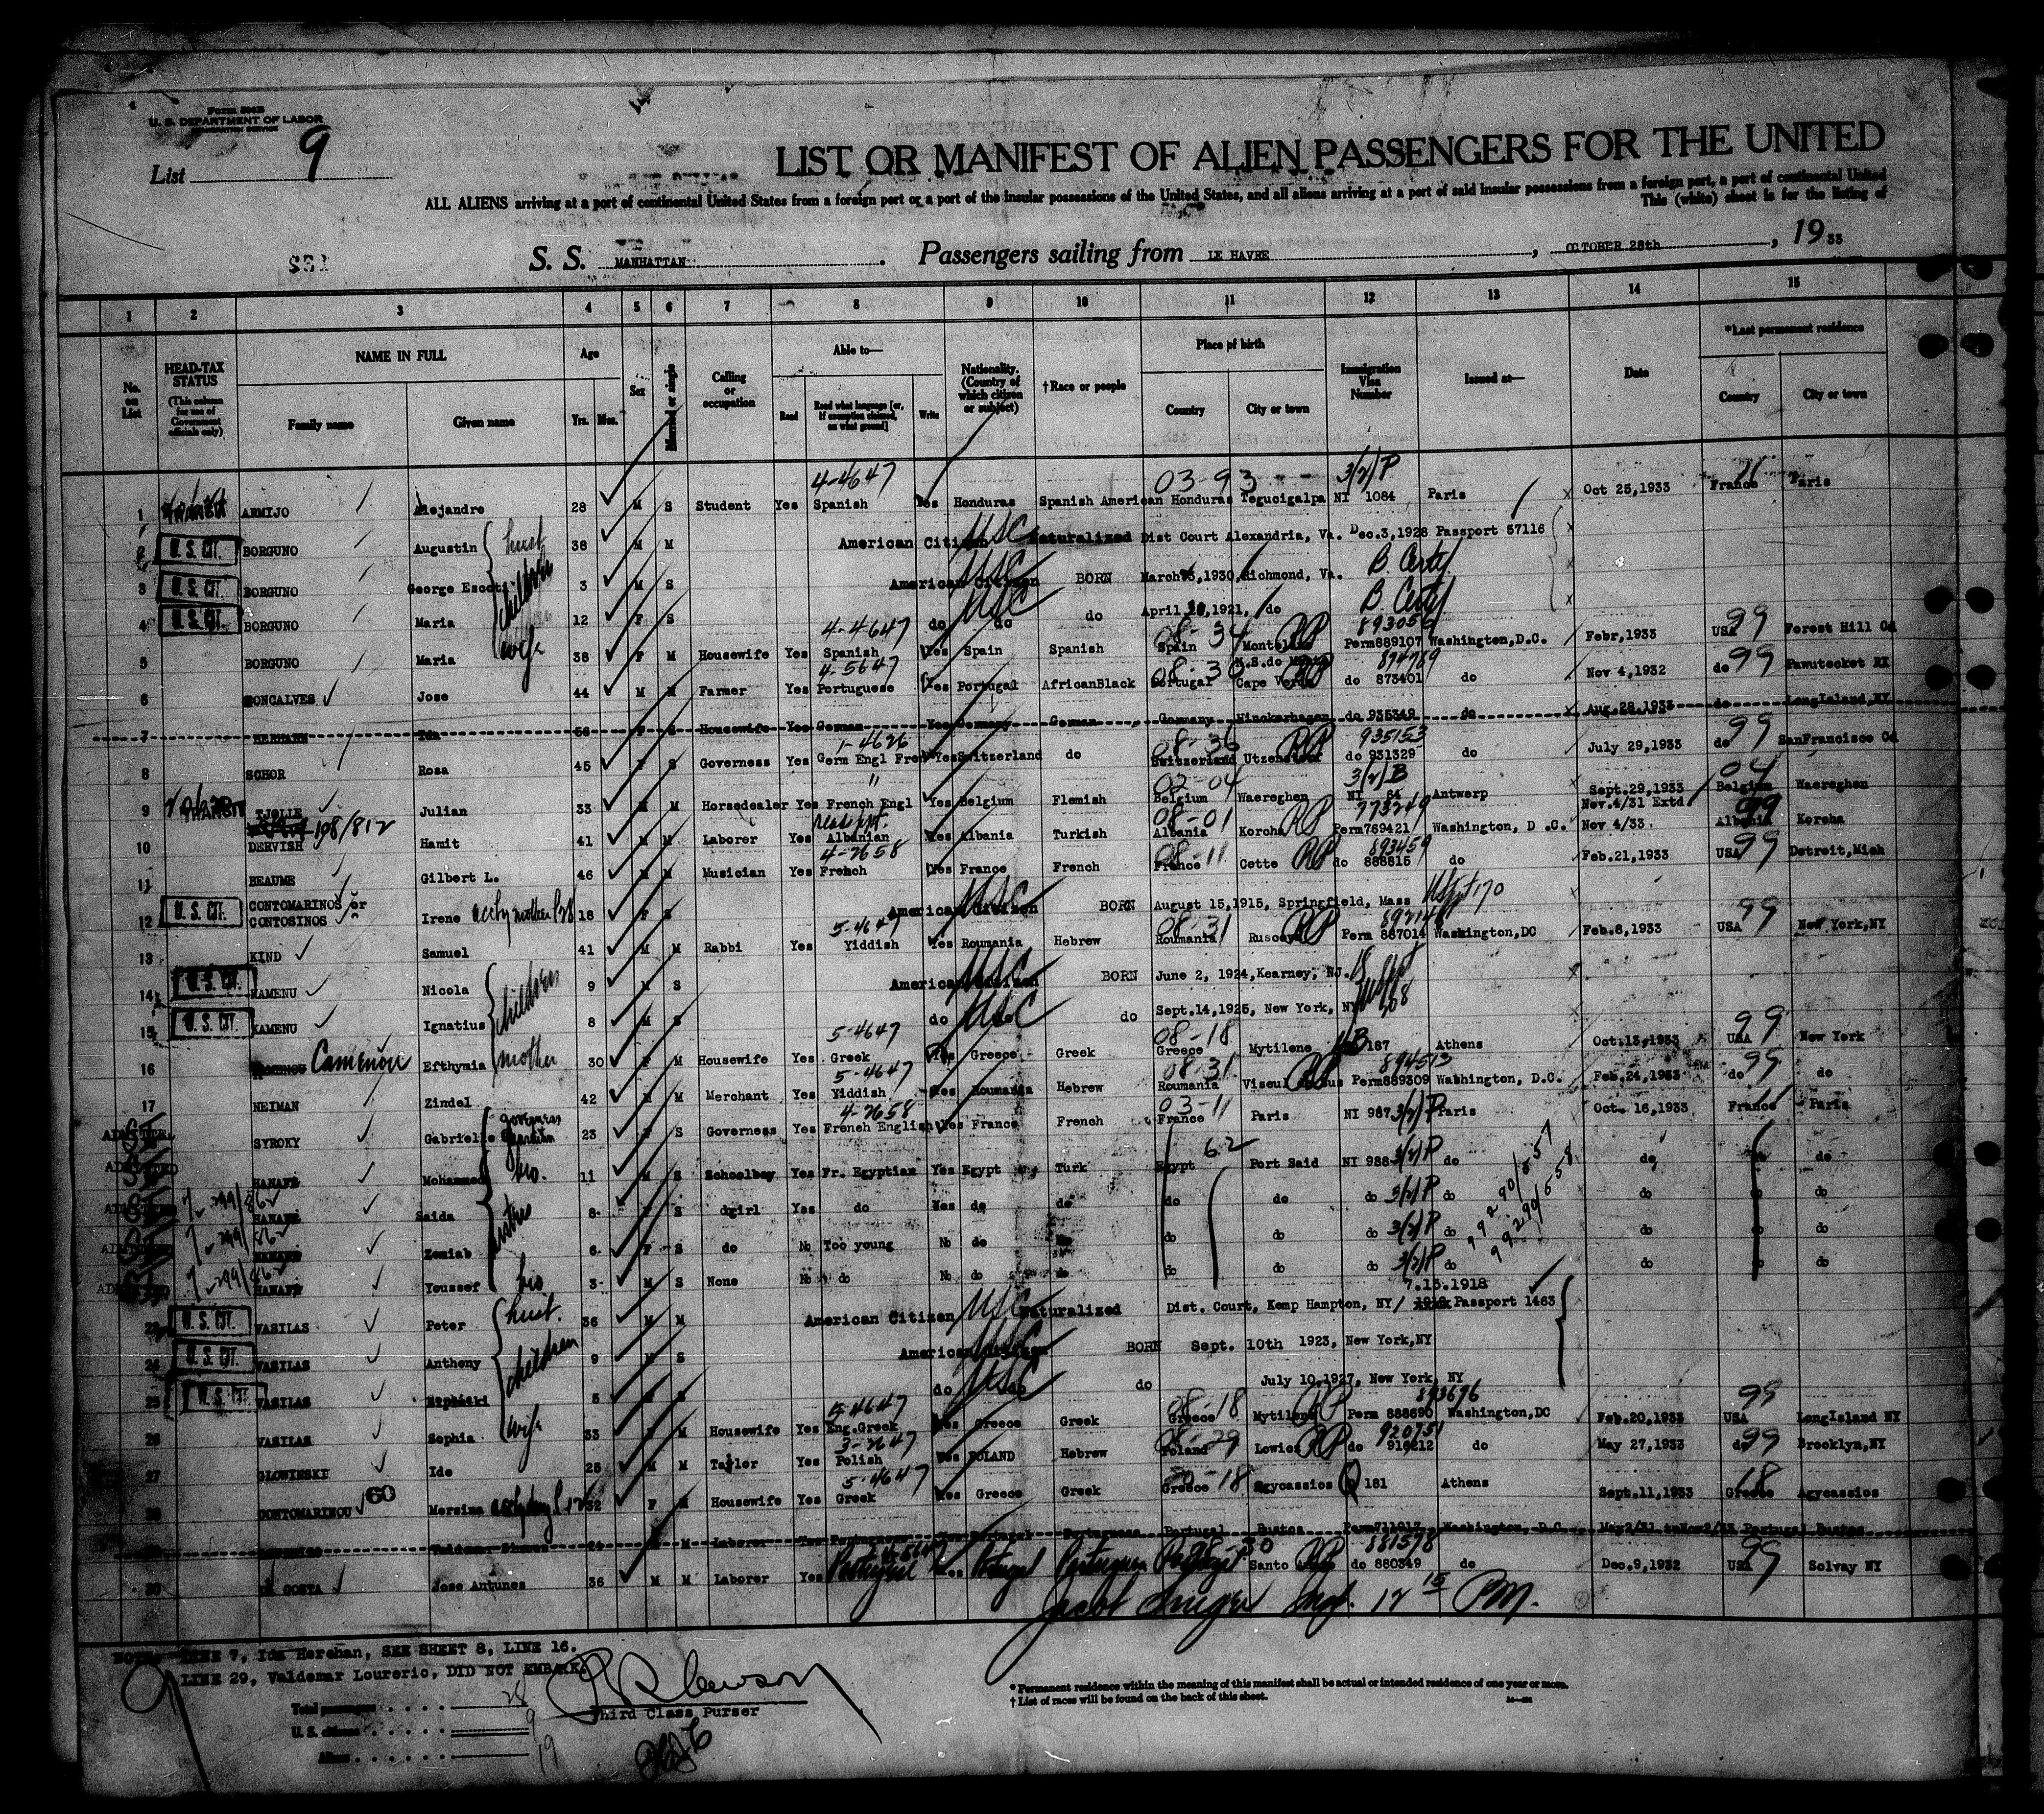 Form 500B
U. S. DEPARTMENT OF LABOR
IMMIGRATION SERVICE
List 9
LIST OR MANIFEST OF ALIEN PASSENGERS FOR THE UNITED
ALL ALIENS arriving at a port of continental United States from a foreign port or a port of the insular possessions of the United States, and all aliens arriving at a port of said insular possessions from a foreign port, a port of continental United
This (white) sheet is for the listing of
S. S. MANHATTAN . Passengers sailing from LE HAVRE , OCTOBER 28th , 19 33
1 2 3 4 5 6 7 8 9 10 11 12 13 14 15
No. on List
HEAD-TAX STATUS (This column for use of Government officials only)
NAME IN FULL Family name Given name
Age Yrs. Mos.
Sex
Married or single
Calling or occupation
Able to— Read Read what language [or, if exemption claimed, on what ground] Write
Nationality. (Country of which citizen or subject)
†Race or people
Place of birth Country City or town
Immigration Visa Number
Issued at—
Date
*Last permanent residence Country City or town
4-4647 03-93 3/2/P
1 ARMIJO Alejandro 28 M S Student Yes Spanish Yes Honduras Spanish American Honduras Tegucigalpa NI 1084 Paris Oct 25,1933 France Paris
2 U. S. CIT. BORGUNO Augustin husb 38 M M American Citizen USC Naturalized Dist Court Alexandria, Va. Dec.3,1928 Passport 57116
3 U. S. CIT. BORGUNO George Escot children 3 M S American Citizen USC BORN March 1930, Richmond, Va. B. Certf
4 U. S. CIT. BORGUNO Maria 12 F S do USC do do April 1921, do B. Certf
4-4647 08-34 RP 893056 99
5 BORGUNO Maria wife 38 F M Housewife Yes Spanish Yes Spain Spanish Spain Perm889107 Washington,D.C. Febr,1933 USA Forest Hill
4-5647 08-30 RP 99
6 GONCALVES Jose 44 M M Farmer Yes Portuguese Yes Portugal AfricanBlack Portugal Cape Verde do 873401 do Nov 4,1932 do Pawutecket RI
7 Ida 56 F S Housewife Yes German Yes Germany German Germany do 935349 do Aug.28,1933 do LongIsland,NY
1-4626 08-36 RP 935153 99
8 SCHOR Rosa 45 F S Governess Yes Germ Engl Fren Yes Switzerland do Switzerland Utzenstorf do 931329 do July 29,1933 do SanFrancisco
" 02-04 3/2/B 04
9 TJOLLE Julian 33 M M Horsedealer Yes French Engl Yes Belgium Flemish Belgium Waereghen NI 64 Antwerp Sept.29,1933 Belgium Waereghen
108/812 08-01 RP 773249 Nov.4/31 Extd 99
10 DERVISH Hamit 41 M M Laborer Yes Albanian Yes Albania Turkish Albania Korcha Perm769421 Washington, D .C. Nov 4/33. Albania Korcha
4-2658 08-11 RP 893459 99
11 BEAUME Gilbert L. 46 M M Musician Yes French Yes France French France Cette do 888815 do Feb.21,1933 USA Detroit,Mich
12 U. S. CIT. CONTOMARINOS or CONTOSINOS Irene 18 F S American Citizen USC BORN August 15,1915, Springfield, Mass
5-4647 08-31 RP 99
13 KIND Samuel 41 M M Rabbi Yes Yiddish Yes Roumania Hebrew Roumania Perm 887014 Washington,DC Feb.8,1933 USA New York,NY
14 U. S. CIT. KAMENU Nicola children 9 M S American Citizen USC BORN June 2, 1924,Kearney, NJ.
15 U. S. CIT. KAMENU Ignatius 8 M S do USC do Sept.14,1925, New York, NY
5-4647 08-18 99
16 Camenou Efthymia mother 30 F M Housewife Yes Greek Yes Greece Greek Greece Mytilene 187 Athens Oct.13,1933 USA New York
5-4647 08-31 RP 894513 99
17 NEIMAN Zindel 42 M M Merchant Yes Yiddish Yes Roumania Hebrew Roumania Perm889309 Washington, D.C. Feb.24,1933 do do
4-2658 03-11 3/2/P 11
ADMITTED SYROKY Gabrielle governess guardian 23 F S Governess Yes French English Yes France French France Paris NI 987 Paris Oct. 16,1933 France Paris
ADMITTED HANAFI Mohammed bro. 11 M S Schoolboy Yes Fr. Egyptian Yes Egypt Turk Egypt 62 Port Said NI 988 3/2/P do do do do
HANAFI Saida sisters 8 F S dogirl Yes do Yes do do do do do 3/2/P do do do do
HANAFI Zeniab 6 F S do No Too young No do do do do do 3/2/P do do do do
HANAFI Youssef bro 3 M S None No do No do do do do do 3/2/P do do do do
99290/857
99290/658
7.15.1918
23 U. S. CIT. VASILAS Peter husb. 36 M M American Citizen USC Naturalized Dist. Court, Kemp Hampton, NY/ Passport 1463
24 U. S. CIT. VASILAS Antheny children 9 M S American Citizen USC BORN Sept. 10th 1923, New York,NY
25 U. S. CIT. VASILAS 5 S do USC do July 10,1927, New York, NY
5-4647 08-18 RP 893696 99
26 VASILAS Sophia wife 33 F M Housewife Yes Eng.Greek Yes Greece Greek Greece Mytilene Perm 888690 Washington,DC Feb.20,1933 USA LongIsland NY
3-2647 08-29 RP 99
27 GLOWINSKI Ido 28 M M Taylor Yes Polish Yes POLAND Hebrew Poland Lowicz do 916212 do May 27,1933 do Brooklyn,NY
5-4647 18
28 CONTOMARINOU 60 Mersina 32 F M Housewife Yes Greek Yes Greece Greek Greece Agycassios 181 Athens Sept.11,1933 Greece Agycassios
29 M Laborer Yes Portuguese Yes Portugal Portuguese Portugal Bustos Perm711017 Washington, D.C. Portugal Bustos
08-30 RP 881578 99
30 DA COSTA Jose Antunes 36 M M Laborer Yes Portugese Yes Portugal Portuguese Portugal Santo do 880349 do Dec.9,1932 USA Solvay NY
Jacob Insp. 12 15 PM.
NOTE. LINE 7, Ida Herehan, SEE SHEET 8, LINE 16.
LINE 29, Valdemar Loureric, DID NOT EMBARK.
Total passengers . . . . . 28
U. S. citizens . . . . . 9
Aliens . . . . . 19
Third Class Purser
* Permanent residence within the meaning of this manifest shall be actual or intended residence of one year or more.
† List of races will be found on the back of this sheet.